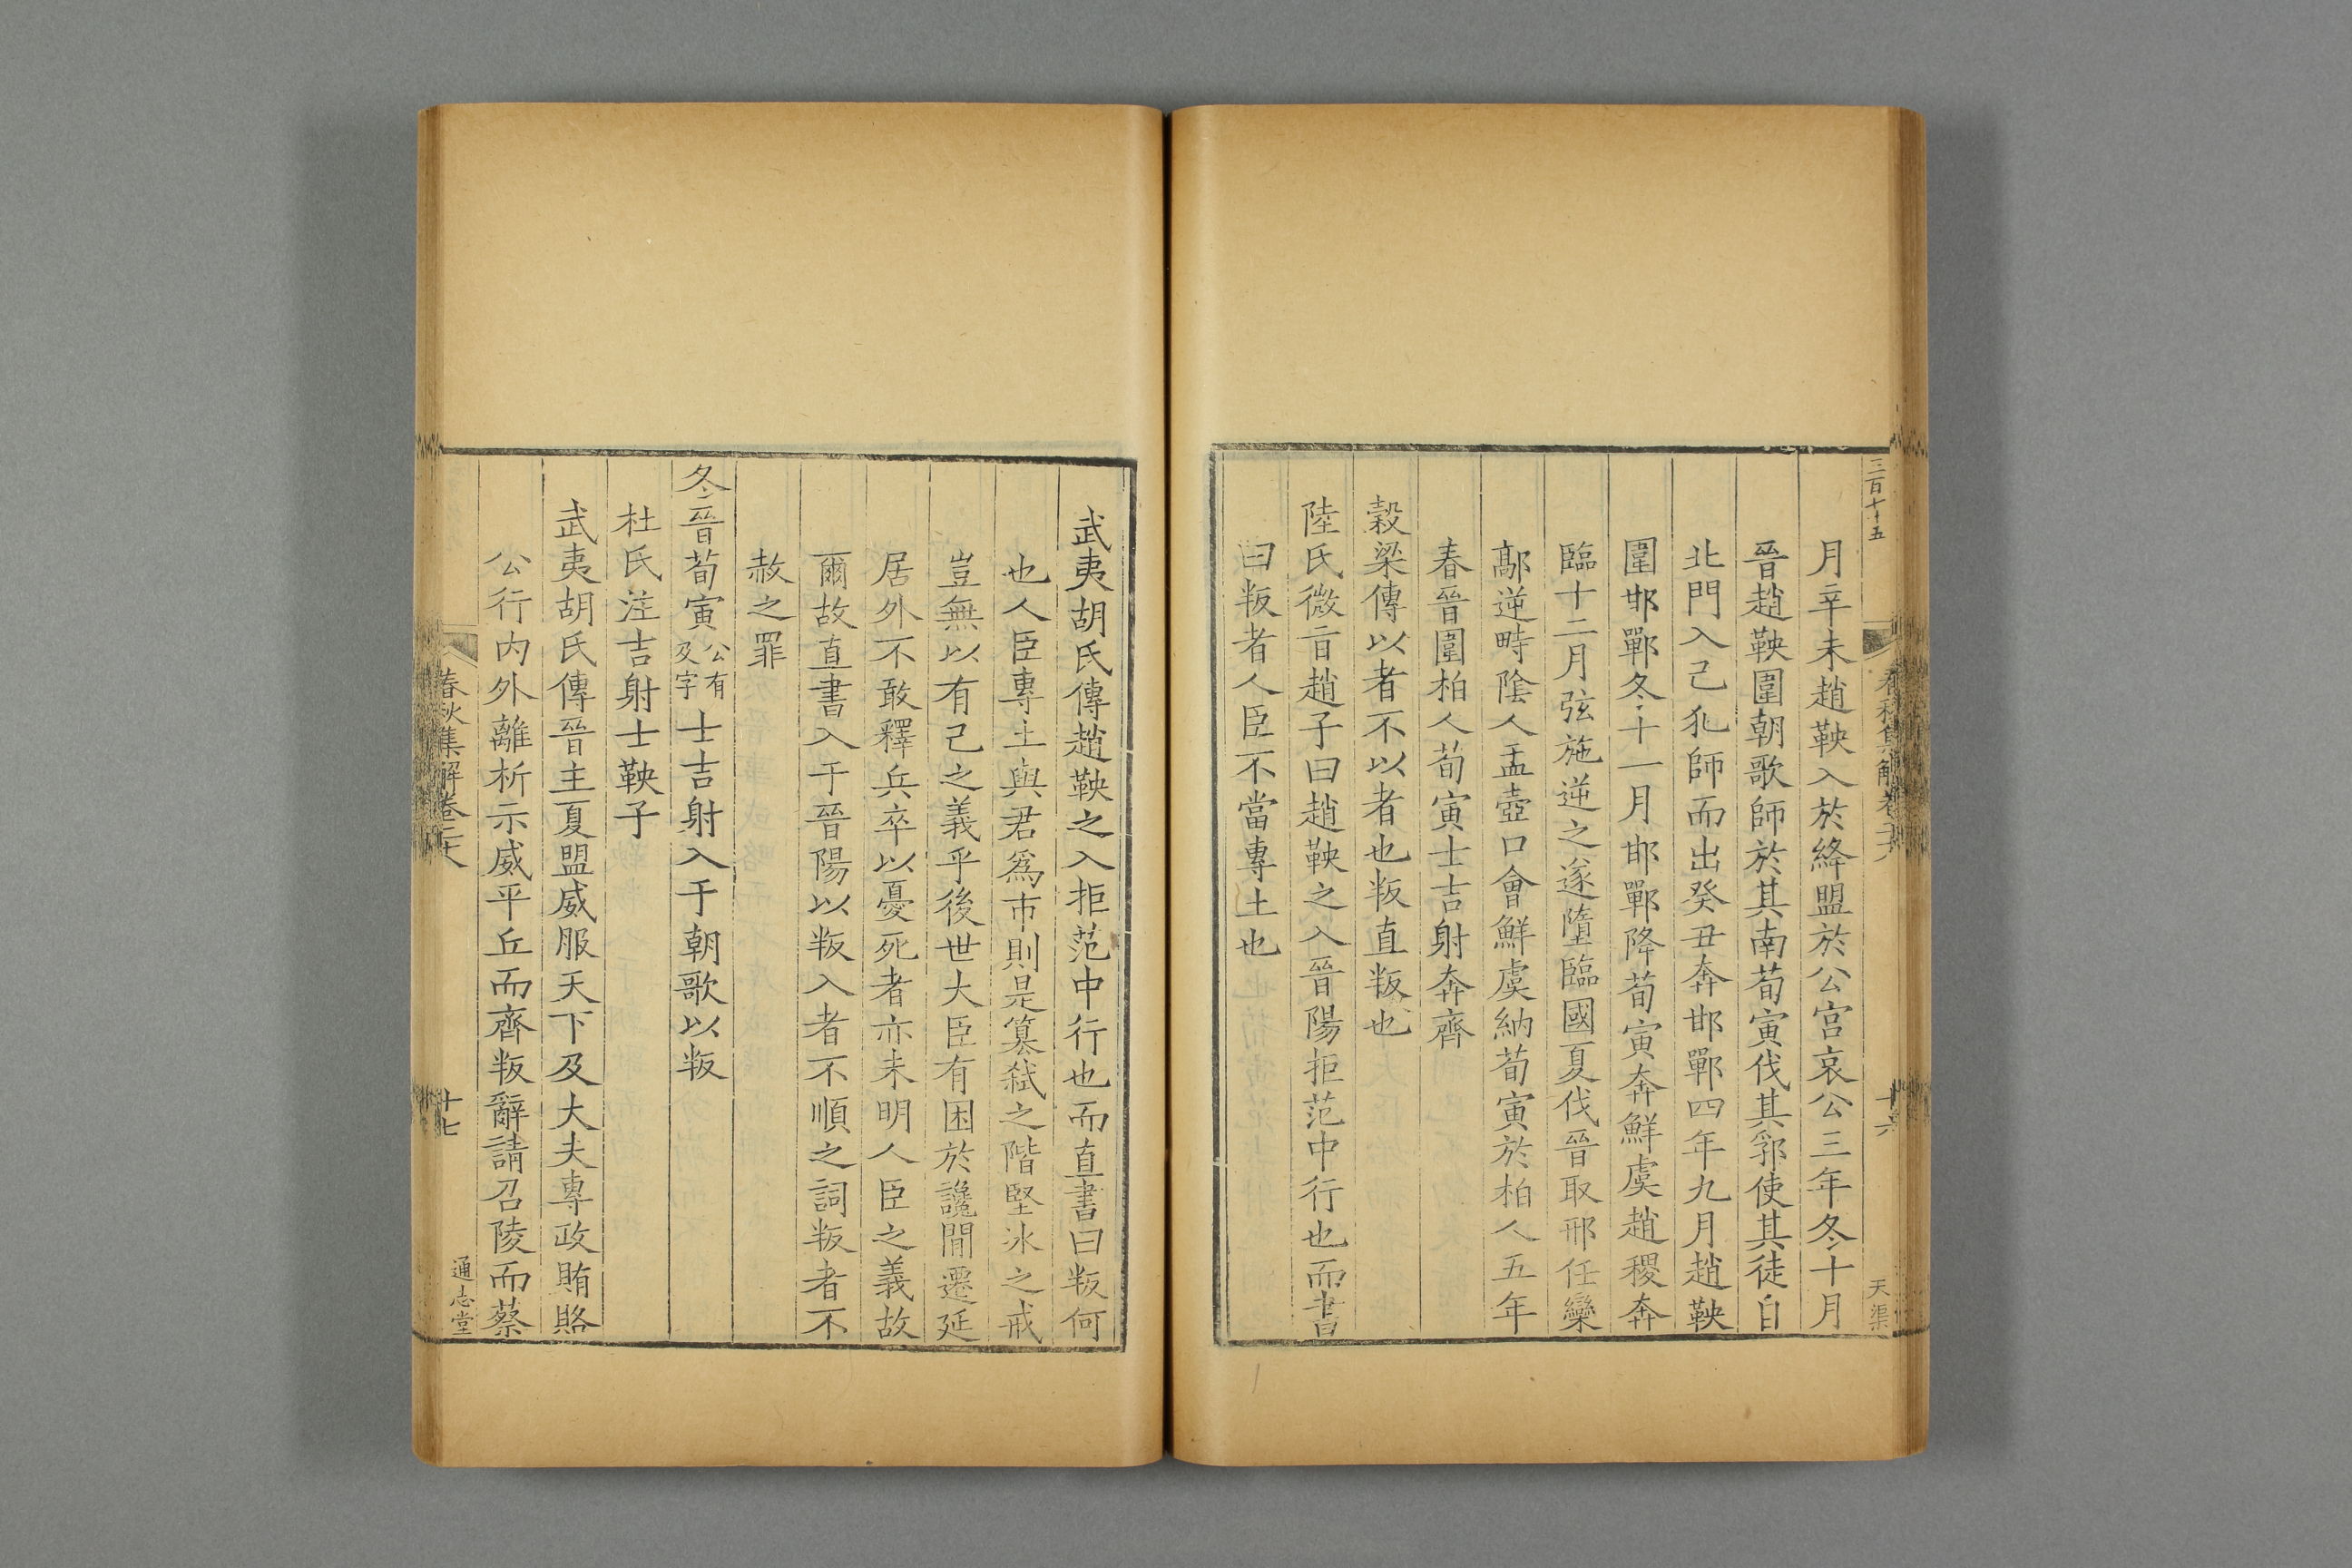 三百七十五
春秋集解卷二十八
十六
天渠
月辛未趙鞅入於絳盟於公宮哀公三年冬十月
晉趙鞅圍朝歌師於其南荀寅伐其郛使其徒自
北門入己犯師而出癸丑奔邯鄲四年九月趙鞅
圍邯鄲冬十一月邯鄲降荀寅奔鮮虞趙稷奔
臨十二月弦施逆之遂墮臨國夏伐晉取邢任欒
鄗逆畤陰人盂壺口會鮮虞納荀寅於柏人五年
春晉圍柏人荀寅士吉射奔齊
穀梁傳以者不以者也叛直叛也
陸氏微㫖趙子曰趙鞅之入晉陽拒范中行也而書
曰叛者人臣不當專土也
武夷胡氏傳趙鞅之入拒范中行也而直書曰叛何
也人臣專土與君爲市則是篡弑之階堅冰之戒
豈無以有己之義乎後世大臣有困於讒間遷延
居外不敢釋兵卒以憂死者亦未明人臣之義故
爾故直書入于晉陽以叛入者不順之詞叛者不
赦之罪
冬晉荀寅公有及字士吉射入于朝歌以叛
杜氏注吉射士鞅子
武夷胡氏傳晉主夏盟威服天下及大夫專政賄賂
公行内外離析示威平丘而齊叛辭請召陵而蔡
春秋集解卷二十八
十七
通志堂